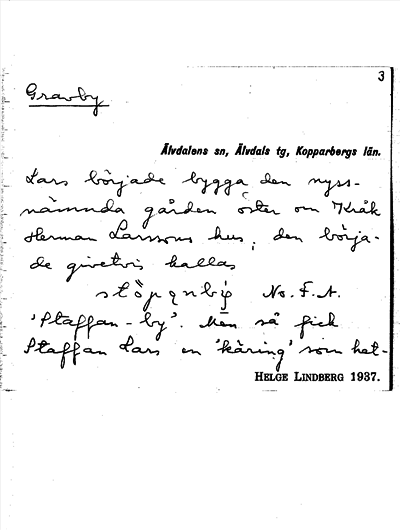 3
Gravby
Älvdalens sn, Älvdals tg, Kopparbergs län.
Lars började bygga den nyss-
nämnda gården öster om Kråk
Herman Larssons hus, den börja-
de givetvis kallas
No. F. A.
'Staffan-by'. Men så fick
Staffan Lars en 'käring' som het-
HELGE LINDBERG 1937.